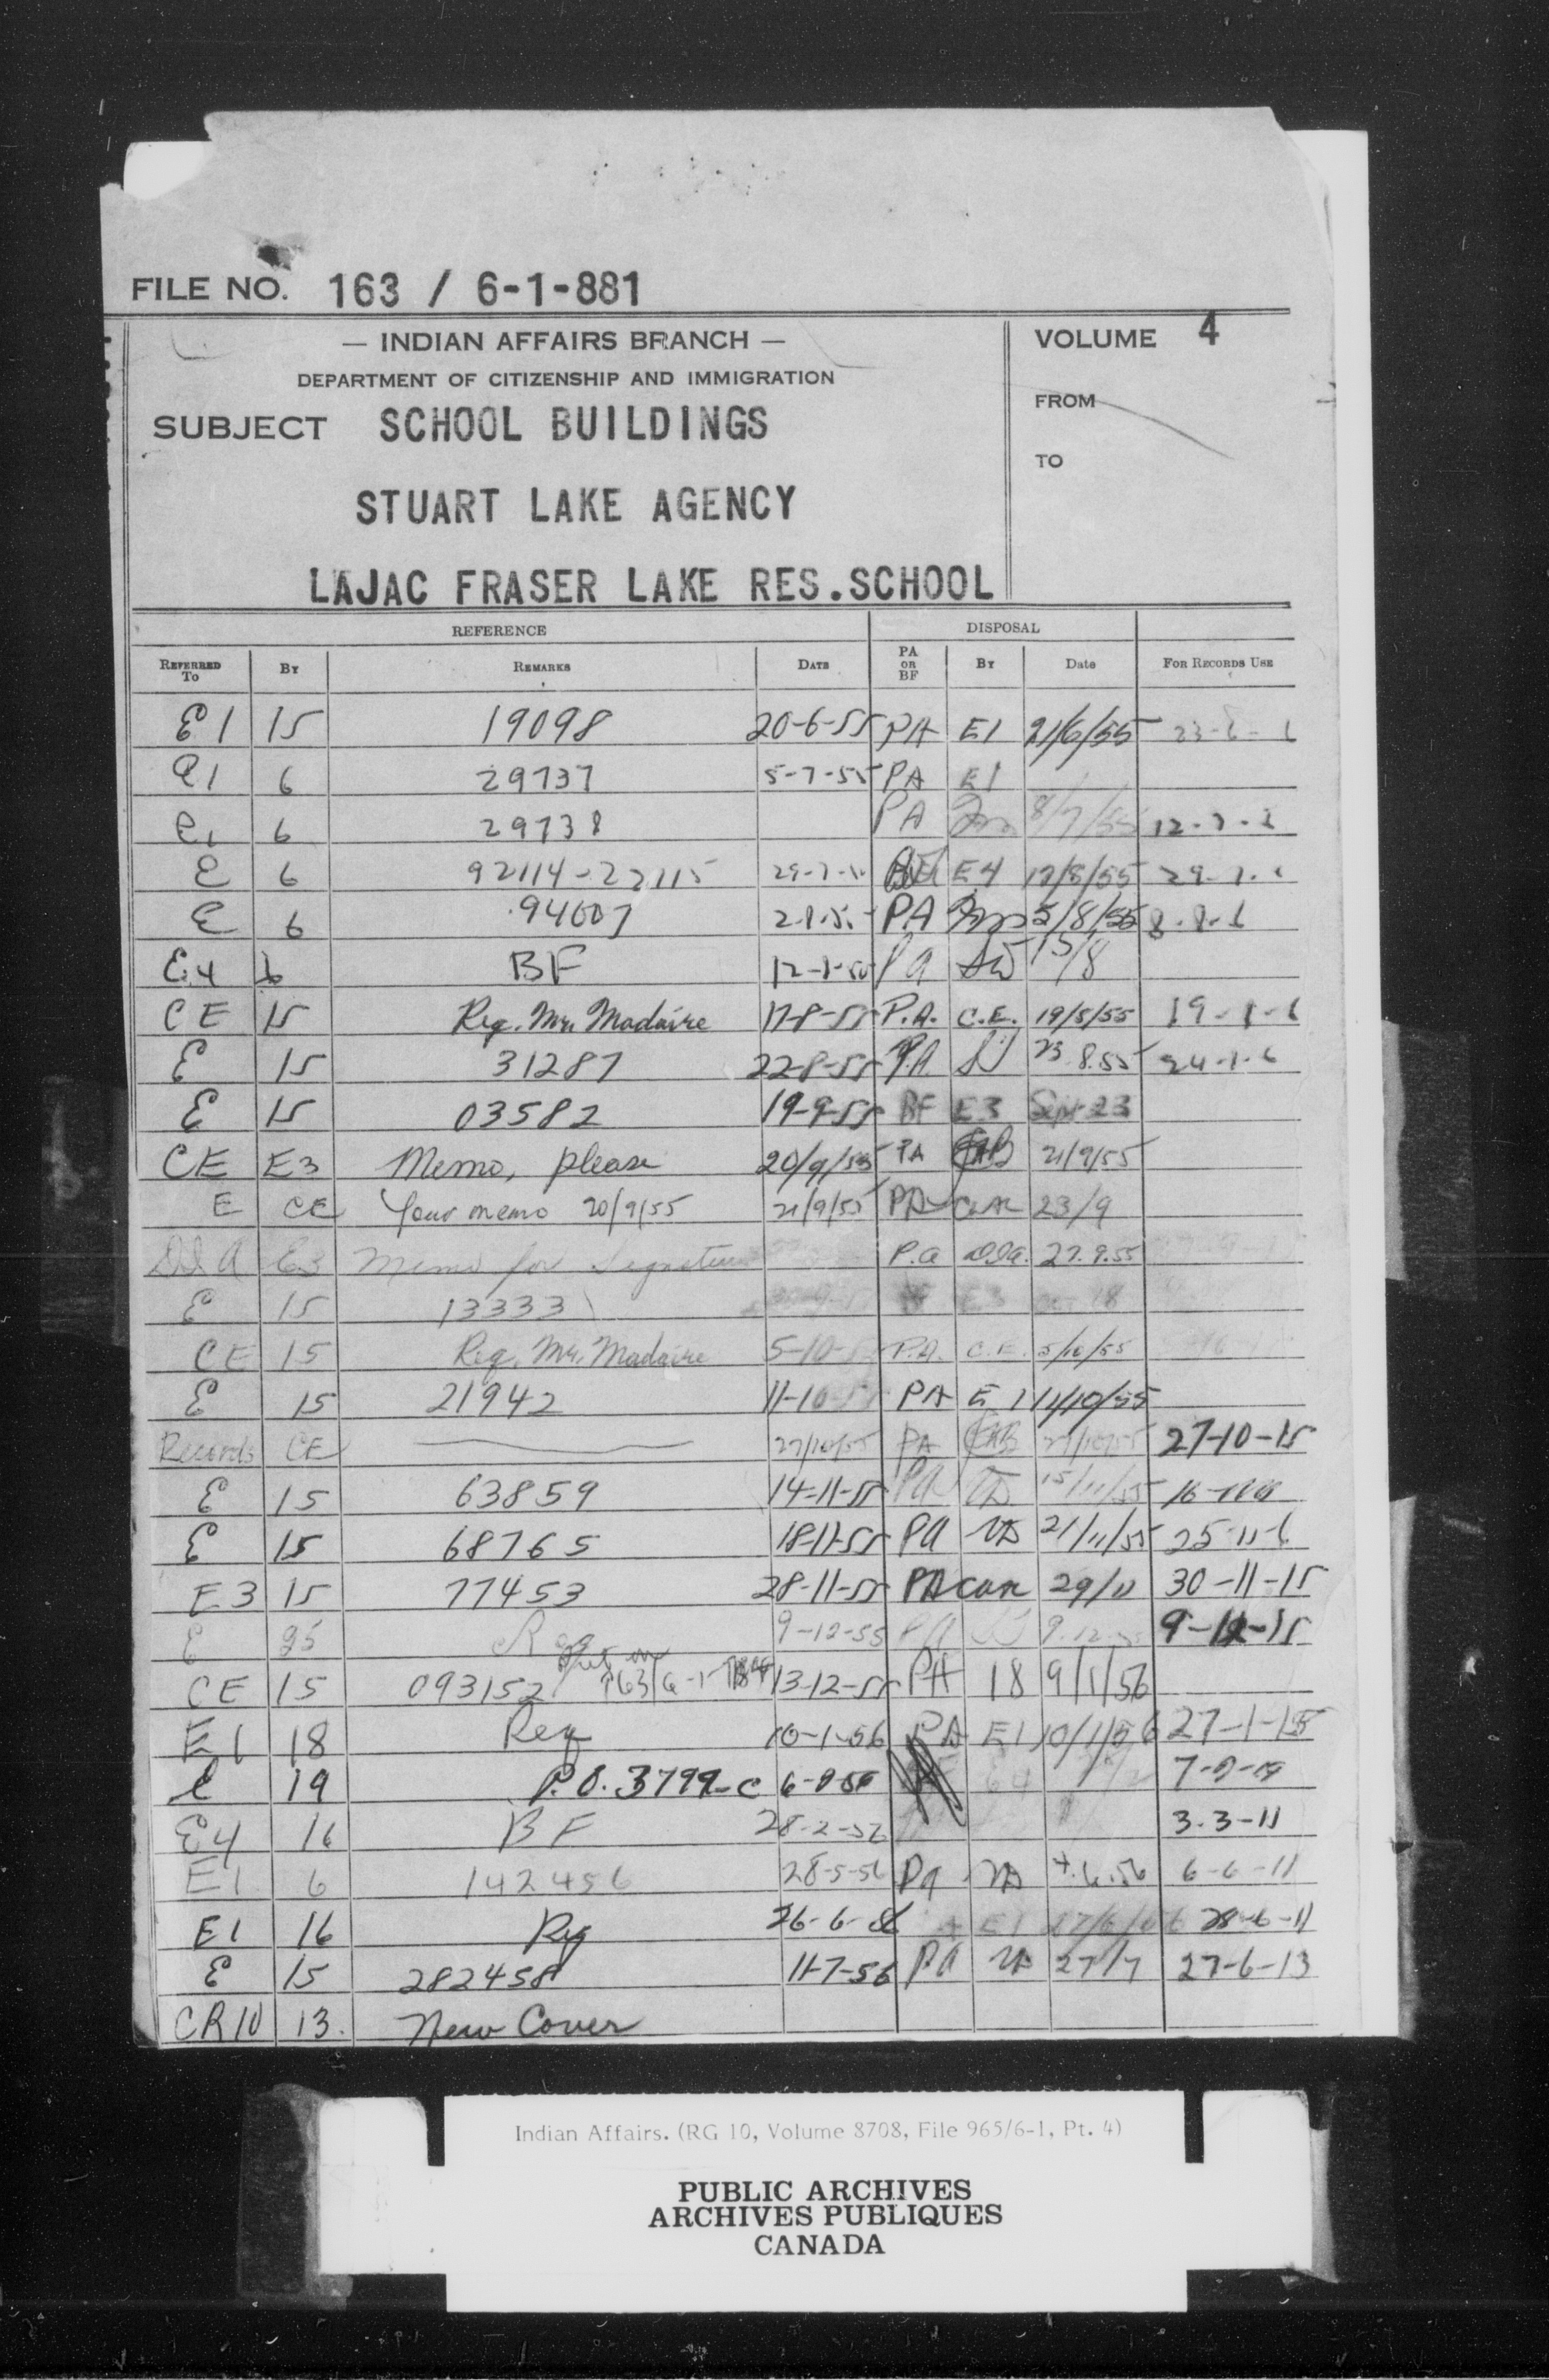 FILE NO. 163 / 6-1-881
— INDIAN AFFAIRS BRANCH —
DEPARTMENT OF CITIZENSHIP AND IMMIGRATION
SUBJECT SCHOOL BUILDINGS
STUART LAKE AGENCY
LAJAC FRASER LAKE RES.SCHOOL
VOLUME 4
FROM
TO
REFERENCE DISPOSAL
REFERRED TO BY REMARKS DATE PA OR BF BY Date FOR RECORDS USE
E1 15 19098 20-6-55 PA E1 21/6/55 23-6-6
E1 6 29737 5-7-55 PA E1
E1 6 29738 PA 8/7/55
E 6 E4 17/8/55
E 6 94607 PA 5/8/55
E4 6 BF PA 15/8
CE 15 Req. Mr. Madaire 17-8-55 P.A. C.E. 19/8/55
E 15 31287 22-8-55 PA 23.8.55
E 15 03582 19-9-55 BF E3 Sept 23
CE E3 Memo, please 20/9/55 PA 21/9/55
E CE Your memo 20/9/55 21/9/55 PA 23/9
DIA E3 Memo for Signature P.a DIA. 27.9.55
E 15 13333 E3
CE 15 Req. Mr. Madaire 5-10 P.A. C.E. 5/10/55
E 15 21942 11-10 PA E1 11/10/55
Records CE 27/10/55 PA 27/10/55 27-10-15
E 15 63859 14-11-55 PA 15/11/55
E 15 68765 18-11-55 PA 21/11/55 25-11-6
E3 15 77453 28-11-55 PA 29/11 30-11-15
E 25 9-12-55 PA 9-12-15
CE 15 093152 13-12-55 PA 18 9/1/56
E1 18 Req 10-1-56 PA E1 10/1/56 27-1-15
E 19 P.O. 3799-C
E4 16 BF 3-3-11
E1 6 142456 28-5-56 PA 4.6.56 6-6-11
E1 16 Req 26-6-56 E1 28-6-11
E 15 282458 11-7-56 PA 27/7 27-6-13
CR10 13. New Cover
Indian Affairs. (RG 10, Volume 8708, File 965/6-1, Pt. 4)
PUBLIC ARCHIVES
ARCHIVES PUBLIQUES
CANADA